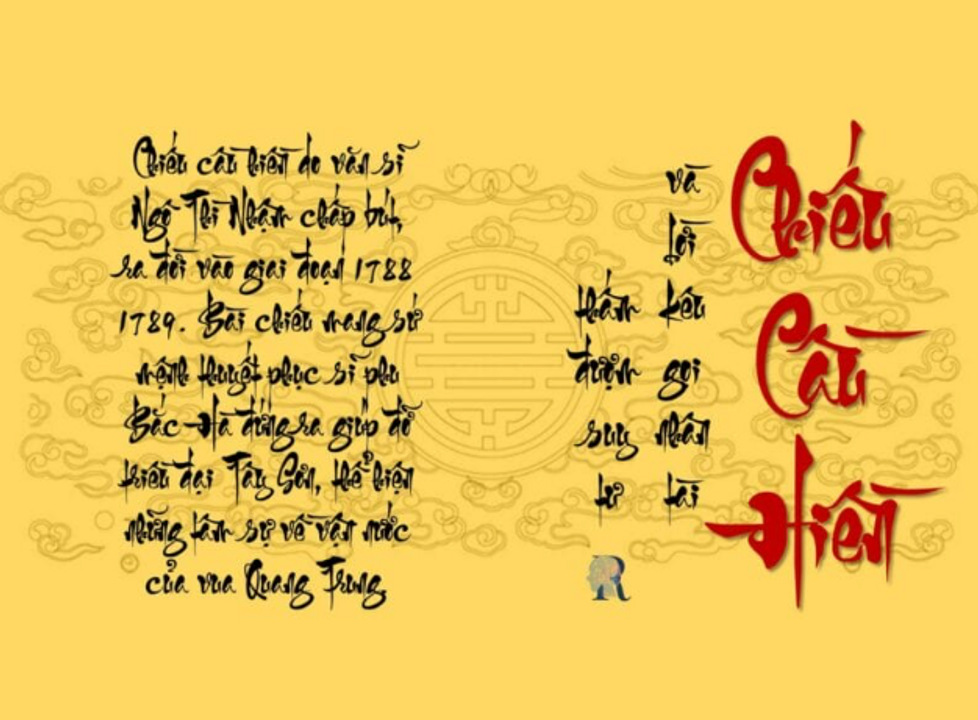 Chiếu
Cầu
Hiền
và
lời
kêu
gọi
nhân
tài
thấm
đượm
suy
tư
Chiếu cầu hiền do văn sĩ
Ngô Thì Nhậm chấp bút,
ra đời vào giai đoạn 1788
1789. Bài chiếu mang sứ
mệnh thuyết phục sĩ phu
Bắc Hà đứng ra giúp đỡ
triều đại Tây Sơn, thể hiện
những tâm sự về vận nước
của vua Quang Trung.
R